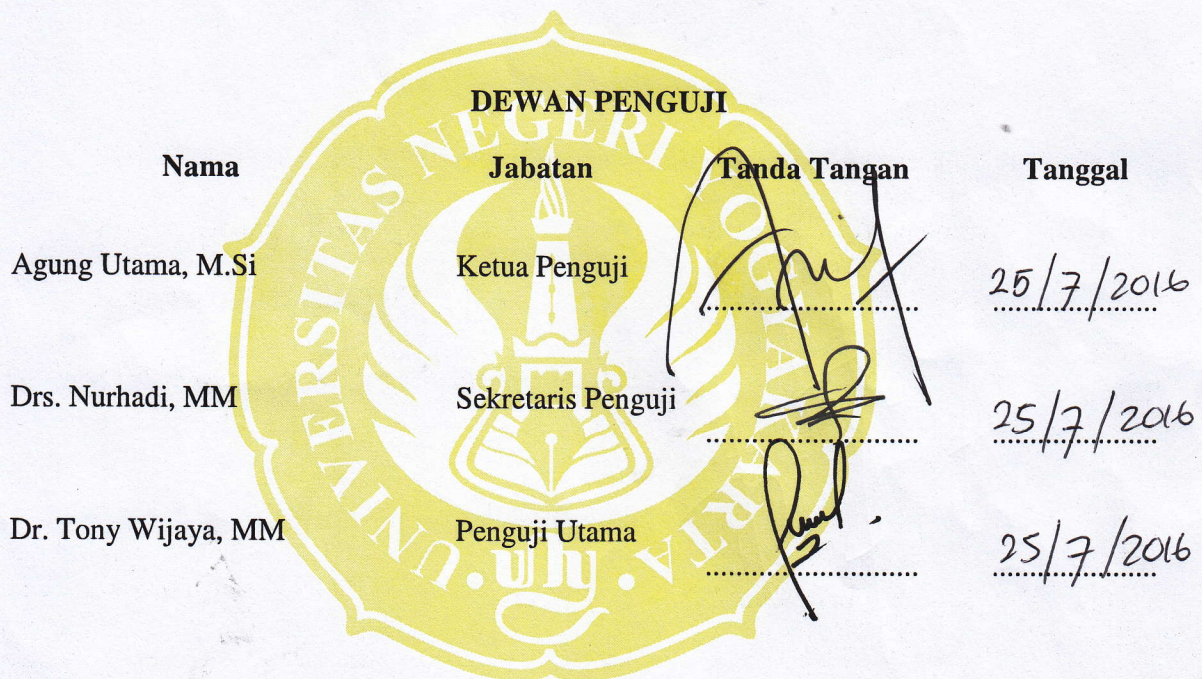 DEWAN PENGUJI
Nama Jabatan Tanda Tangan Tanggal
Agung Utama, M.Si Ketua Penguji 25/7/2016
Drs. Nurhadi, MM Sekretaris Penguji 25/7/2016
Dr. Tony Wijaya, MM Penguji Utama 25/7/2016
UNIVERSITAS NEGERI YOGYAKARTA
uny